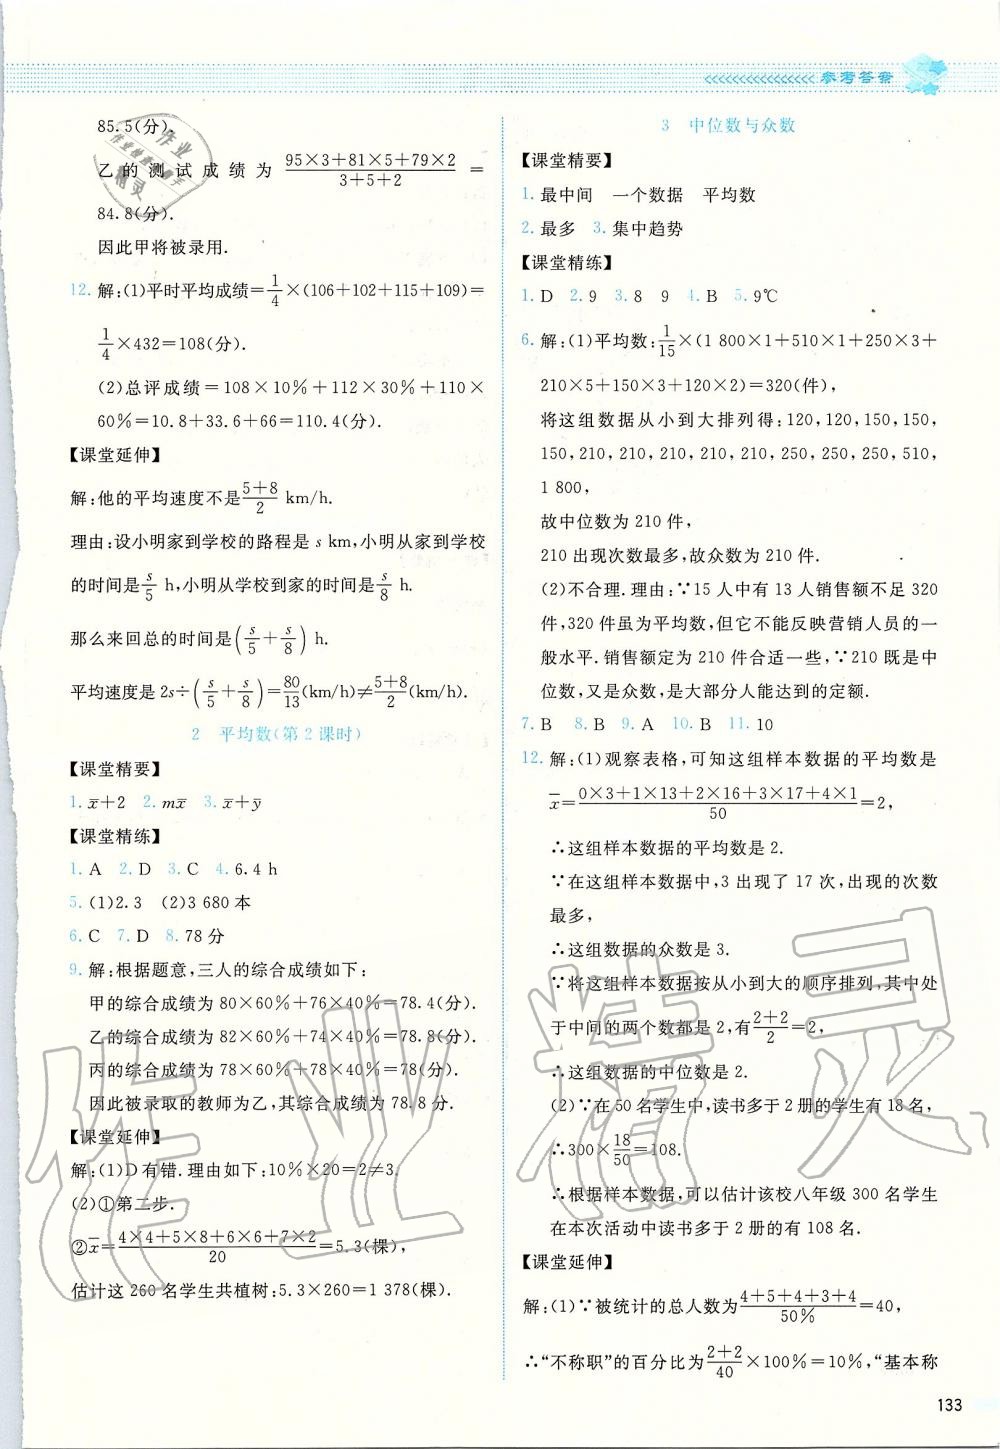 参考答案
85.5(分).
乙的测试成绩为 (95×3+81×5+79×2)/(3+5+2) =
84.8(分).
因此甲将被录用.
12. 解:(1)平时平均成绩=1/4×(106+102+115+109)=
1/4×432=108(分).
(2)总评成绩=108×10%+112×30%+110×
60%=10.8+33.6+66=110.4(分).
【课堂延伸】
解:他的平均速度不是(5+8)/2 km/h.
理由:设小明家到学校的路程是 s km,小明从家到学校
的时间是s/5 h,小明从学校到家的时间是s/8 h.
那么来回总的时间是(s/5+s/8) h.
平均速度是 2s÷(s/5+s/8)=80/13(km/h)≠(5+8)/2(km/h).
2 平均数(第2课时)
【课堂精要】
1. x̄+2 2. mx̄ 3. x̄+ȳ
【课堂精练】
1. A 2. D 3. C 4. 6.4 h
5. (1)2.3 (2)3 680 本
6. C 7. D 8. 78 分
9. 解:根据题意,三人的综合成绩如下:
甲的综合成绩为 80×60%+76×40%=78.4(分).
乙的综合成绩为 82×60%+74×40%=78.8(分).
丙的综合成绩为 78×60%+78×40%=78(分).
因此被录取的教师为乙,其综合成绩为 78.8 分.
【课堂延伸】
解:(1)D 有错.理由如下:10%×20=2≠3.
(2)①第二步.
②x̄=(4×4+5×8+6×6+7×2)/20=5.3(棵),
估计这 260 名学生共植树:5.3×260=1 378(棵).
3 中位数与众数
【课堂精要】
1. 最中间 一个数据 平均数
2. 最多 3. 集中趋势
【课堂精练】
1. D 2. 9 3. 8 9 4. B 5. 9℃
6. 解:(1)平均数:1/15×(1 800×1+510×1+250×3+
210×5+150×3+120×2)=320(件),
将这组数据从小到大排列得:120,120,150,150,
150,210,210,210,210,210,250,250,250,510,
1 800,
故中位数为 210 件,
210 出现次数最多,故众数为 210 件.
(2)不合理.理由:∵15 人中有 13 人销售额不足 320
件,320 件虽为平均数,但它不能反映营销人员的一
般水平.销售额定为 210 件合适一些,∵210 既是中
位数,又是众数,是大部分人能达到的定额.
7. B 8. B 9. A 10. B 11. 10
12. 解:(1)观察表格,可知这组样本数据的平均数是
x̄=(0×3+1×13+2×16+3×17+4×1)/50=2,
∴这组样本数据的平均数是 2.
∵在这组样本数据中,3 出现了 17 次,出现的次数
最多,
∴这组数据的众数是 3.
∵将这组样本数据按从小到大的顺序排列,其中处
于中间的两个数都是 2,有(2+2)/2=2,
∴这组数据的中位数是 2.
(2)∵在 50 名学生中,读书多于 2 册的学生有 18 名,
∴300×18/50=108.
∴根据样本数据,可以估计该校八年级 300 名学生
在本次活动中读书多于 2 册的有 108 名.
【课堂延伸】
解:(1)∵被统计的总人数为(4+5+4+3+4)/50%=40,
∴“不称职”的百分比为(2+2)/40×100%=10%,“基本称
133
作业精灵